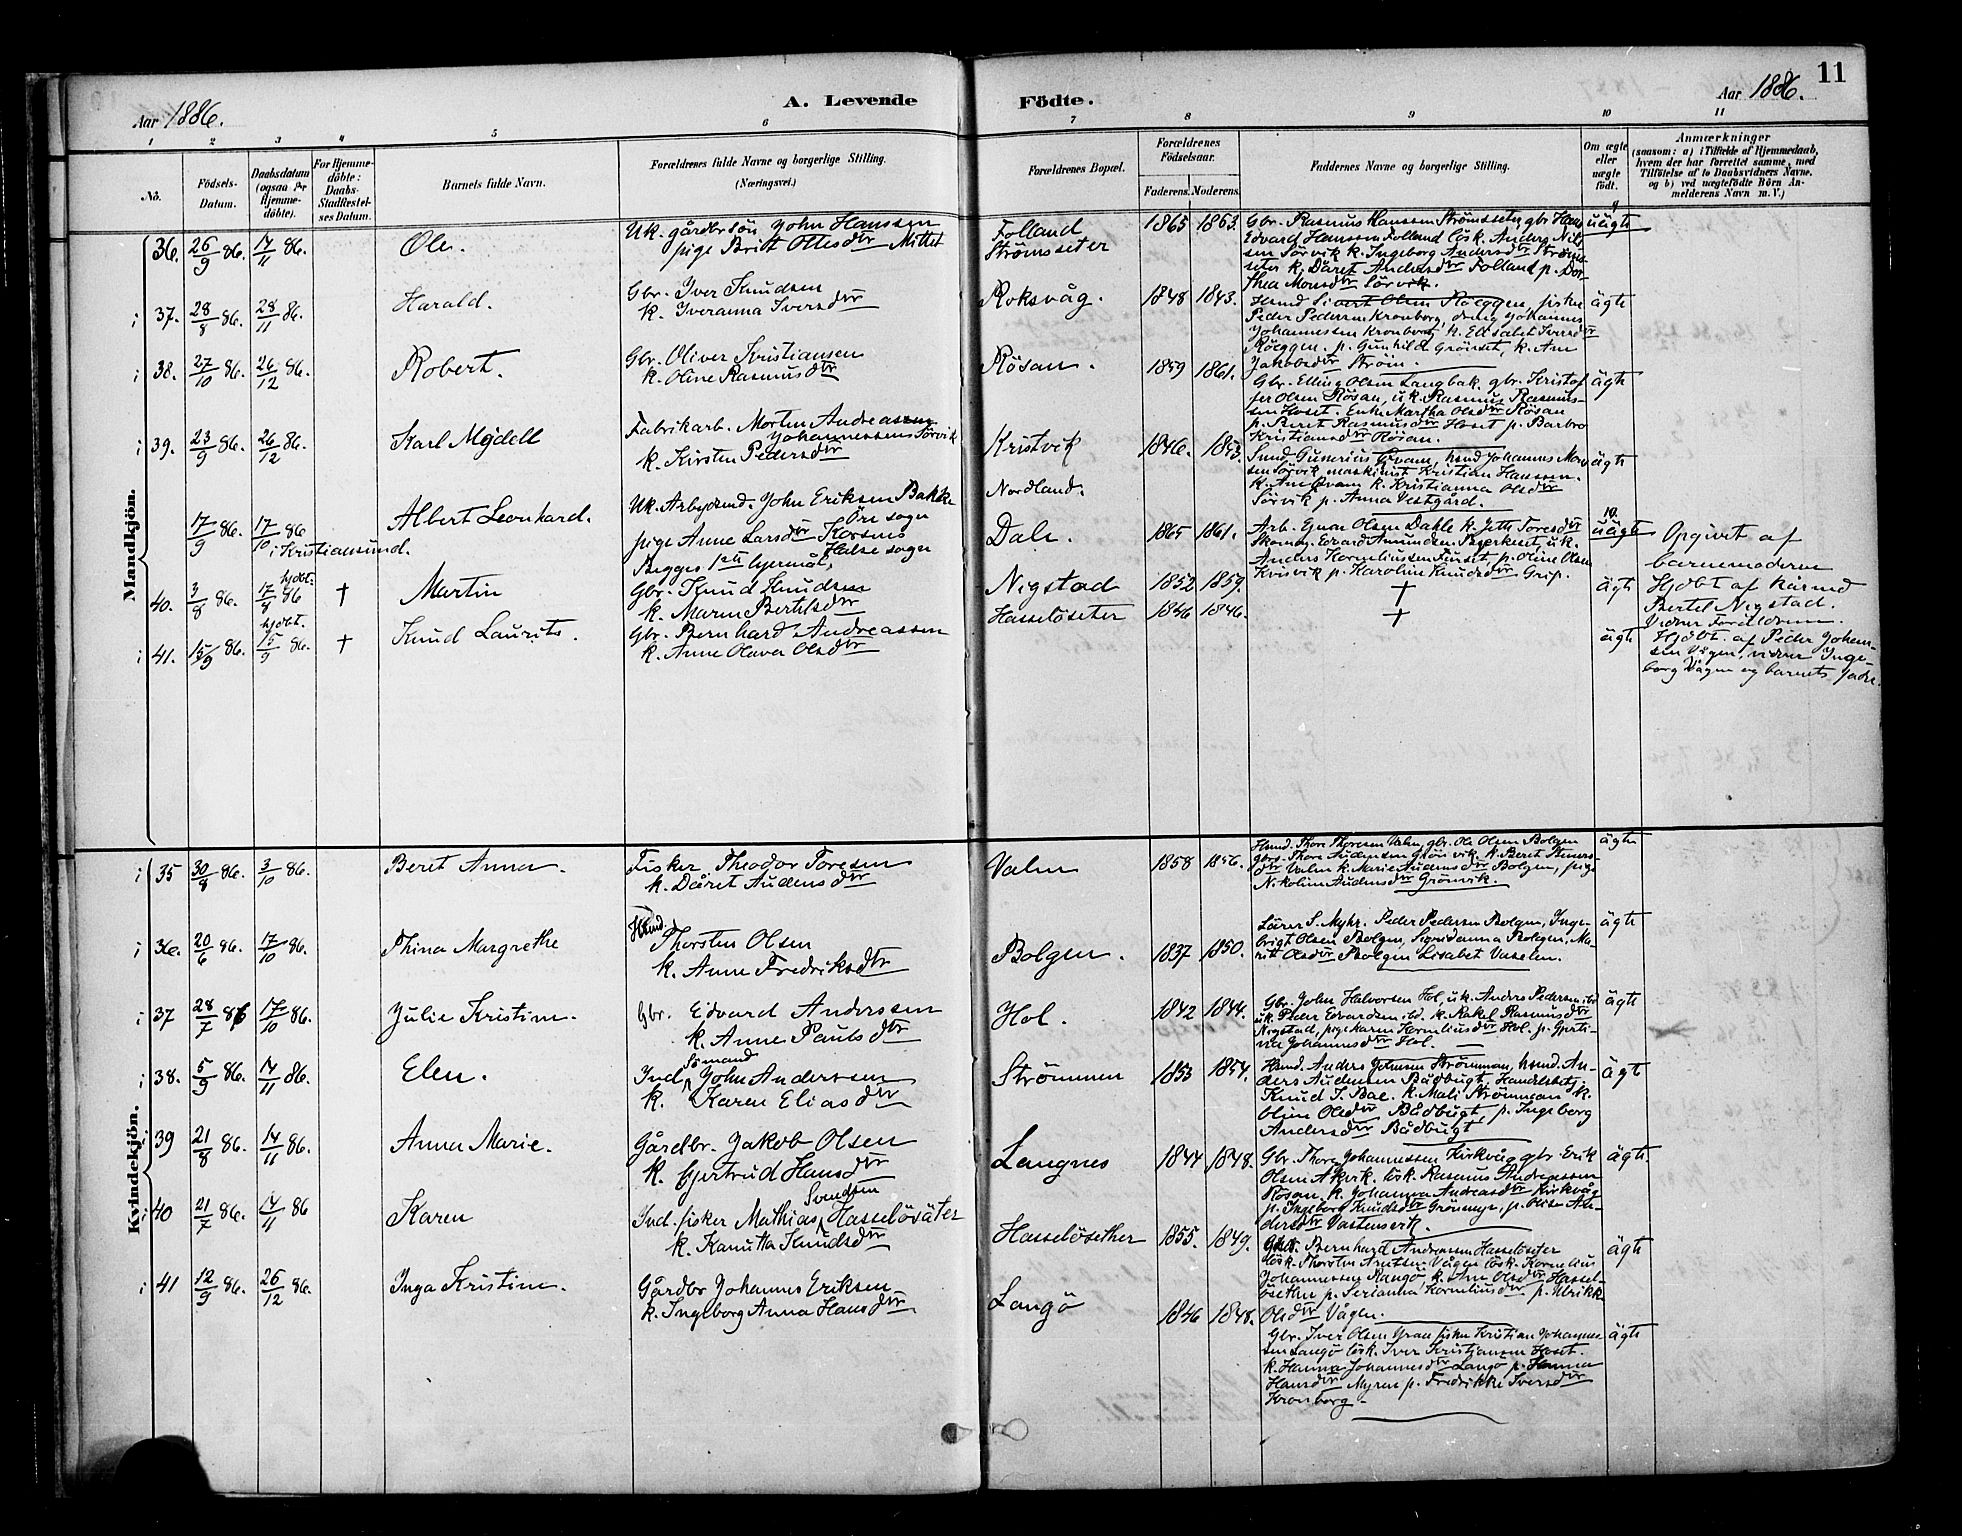 11
Aar 1886. A. Levende Födte. Aar 1886.
1 2 3 4 5 6 7 8 9 10 11
No.
Födsels-
Datum.
Daabsdatum
(ogsaa for
Hjemme-
döbte).
For Hjemme-
döbte:
Daabs-
Stadfæstel-
ses Datum.
Barnets fulde Navn.
Forældrenes fulde Navne og borgerlige Stilling.
(Næringsvei.)
Forældrenes Bopæl.
Forældrenes
Födselsaar.
Faderens. Moderens.
Faddernes Navne og borgerlige Stilling.
Om ægte
eller
uægte
födt.
Anmærkninger
(saasom: a) i Tilfælde af Hjemmedaab,
hvem der har forrettet samme, med
Tilföielse af to Daabsvidners Navne.
og b) ved uægtefödte Börn An-
melderens Navn m. V.)
Mandkjön.
36. 26/9 86. 14/11 86. Ole.
Uk. gårdbrsön John Hanssen
pige Britt Ottesdtr Mittet
Folland
Strömsseter
1865 1863.
Gbr. Rasmus Hanssen Strömsseter, gbr. Hans
Edvard Hanssen Folland lösk. Anders Nils
sen Sörvik k. Ingeborg Andersdtr Ströms-
seter k. Dåret Andersdtr Folland p. Dor-
thea Monsdtr Sörvik.
uägte
i 37. 28/8 86. 28/11 86. Harald.
Gbr. Iver Knudsen
k. Iveranna Iversdtr
Roksvåg.
1848 1843.
Husmd Sivert Olsen Röeggen, fisker
Peder Pedersen Kronborg, dreng Johannes
Johannessen Kronborg, k. Elisabet Iversdtr
Röeggen. p. Gunhild Grönset, k. Ane
Jakobsdtr Ström.
ägte
i 38. 27/10 86. 26/12 86. Robert.
Gbr. Oliver Kristiansen
k. Oline Rasmusdtr
Rösan.
1859 1861.
Gbr. Elling Olsen Langbak. gbr. Kristof
fer Olsen Rösan, uk. Rasmus Rasmus-
sen Hoset. Enke Martha Olsdtr Rösan
p. Beret Rasmusdtr Hoset p. Barbro
Kristiansdtr Rösan.
ägte
i 39. 23/9 86. 26/12 86. Karl Mejdell
Fabrikarb. Morten Andreassen
Johannessens Sörvik
k. Kirsten Pedersdtr
Kristvik
1846. 1853.
Svend Gunerius Qvam, hsmd Johannes Mor
sen Sörvik, maskinist Kristian Hanssen.
k. Ane Qvam k. Kristianna Olsdtr
Sörvik p. Anna Vestgård.
ägte
17/9 86. 17/10 86
i Kristiansund.
Albert Leonhard.
Uk. Arbejdsmd. John Eriksen Bakke
Öre sogn
pige Anne Larsdtr Korsnes
Halse sogn
Begges 1ste lejermål,
Nordland.
Dale.
1865 1861.
Arb. Ejnar Olsen Dahle k. Jette Toresdtr
Skomag. Edvard Amundsen Bjerkeset u.k.
Anders Korneliussen Fuset, p. Oline Olsen
Krisvik p. Karoline Knudsdtr Grip.
10.
uägte
Opgivet af
barnemoderen
40. 3/8 86. hjdbt. 17/8 86 † Martin
Gbr. Knud Knudsen
k. Maren Bertelsdtr
Nigstad
1852 1859.
†
ägte
Hjdbt af kårmd
Bertel Nigstad.
Vidner Foräldrene.
i 41. 15/9 86. hjdbt. 15/9 86. † Knud Laurits.
Gbr. Bernhard Andreassen
k. Anne Olava Olsdtr
Hasselöseter
1846 1846.
†
ägte
Hjdbt. af Peder Johan-
sen Vågen, vidner Inge-
borg Vågen og barnets fader.
Kvindekjön.
i 35 30/8 86. 3/10 86. Beret Anna.
Fisker Theodor Toresen
k. Dåret Audensdtr
Valen
1858 1856.
Husmd. Thore Thoresen Valen, gbr. Ole Olsen Bolgen
gbrs. Thore Audensen Grönvik. k. Beret Steners-
dtr Valen k. Marie Audensdtr Bolgen, pige
Nikoline Audensdtr Grönvik.
ägte
i 36. 20/6 86. 17/10 86. Thina Margrethe
Husmd. Thorsten Olsen
k. Anne Fredriksdtr
Bolgen.
1837 1850.
Lärer S. Myhr. Peder Pedersen Bolgen, Inge-
brigt Olsen Bolgen, Sigridanna Bolgen, Ma-
rit Olsdtr Bolgen Lisabet Vasselen.
ägte
i 37 28/7 86 17/10 86. Julie Kristine.
Gbr. Edvard Anderssen
k. Anne Paulsdtr
Hol.
1842 1844.
Gbr. John Halvorsen Hol, uk. Anders Pedersen ibd
uk. Peder Edvardsen ibd. k. Rakel Rasmusdtr
Nigstad, pige Karen Korneliusdtr Hol. p. Gjerti-
ne Johannesdtr Hol.
ägte
i 38. 5/9 86. 14/11 86. Elen.
Sömand
Ind. John Anderssen
k. Karen Eliasdtr
Strömmen
1853 1854.
Husmd. Anders Johnsen Strömmen, husmd. An-
ders Audensen Bådbugt, Handelsbetj.
Knud I. Bae. k. Mali Strömmen k.
Oline Olsdtr Bådbugt, p. Ingeborg
Andersdtr Bådbugt.
ägte
i 39 21/8 86. 14/11 86. Anna Marie.
Gårdbr. Jakob Olsen
k. Gjertrud Hansdtr
Langnes
1844 1848.
Gbr. Thore Johannessen Kirkvåg gbr. Erik
Olsen Akvik. lösk. Rasmus Andreassen
Rösan. k. Johanna Andreasdtr Kirkvåg
p. Ingeborg Knudsdtr Grönmyr, p. Olise An-
dersdtr Vastensetr.
ägte.
i 40 21/7 86. 14/11 86 Karen
Svendsen
Ind. fisker Mathias Hasselösäter
k. Kanutta Knudsdtr
Hasselösether
1855. 1849.
Gbr. Bernhard Andreassen Hasselöseter
lösk. Thorsten Arntsen Vågen lösk. Kornelius
Johannessen Rangö, k. Ane Olsdtr Hassel-
ösether p. Serianna Korneliusdtr p. Ulrikke
Olsdtr Vågen.
ägte
i 41 12/9 86. 26/12 86. Inga Kristine.
Gårdbr Johannes Eriksen
k. Ingeborg Anna Hansdtr
Langö
1846 1848.
Gbr. Iver Olsen Gran fisker Kristian Johannes-
sen Langö lösk. Iver Kristiansen Hoset.
k. Hanna Johannesdtr Langö p. Hanna
Hansdtr Myren p. Fredrikke Iversdtr
Kronborg.
ägte